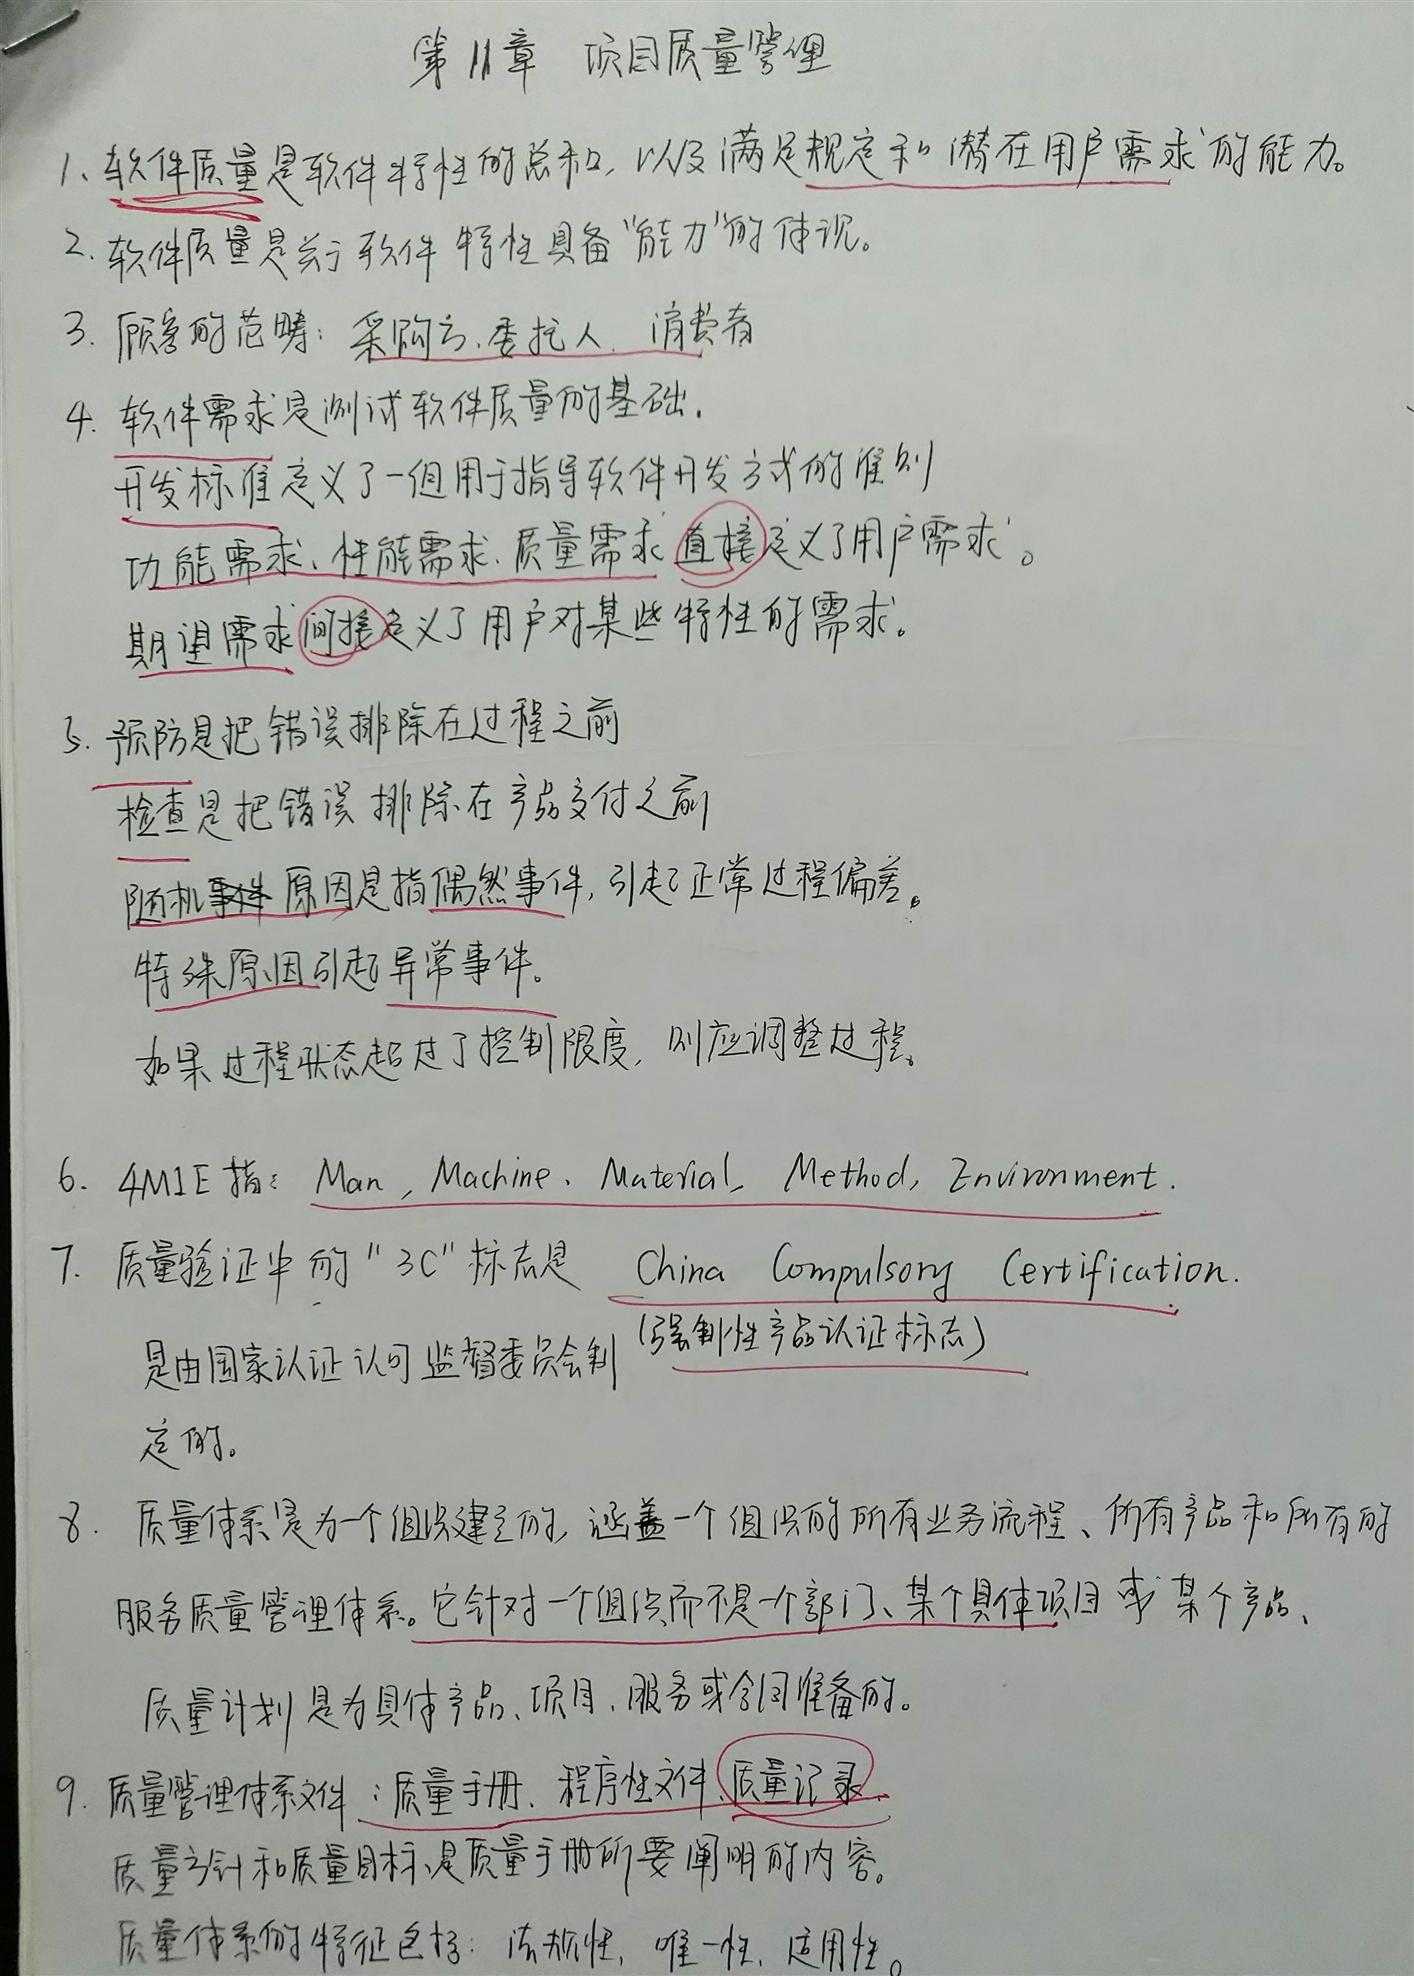 第11章 项目质量管理
1、软件质量是软件特性的总和，以及满足规定和潜在用户需求的能力。
2. 软件质量是关于软件特性具备"能力"的体现。
3. 顾客的范畴：采购方、委托人、消费者
4. 软件需求是测试软件质量的基础.
开发标准定义了一组用于指导软件开发方式的准则
功能需求、性能需求、质量需求直接定义了用户需求。
期望需求间接定义了用户对某些特性的需求。
5. 预防是把错误排除在过程之前
检查是把错误排除在产品交付之前
随机事件原因是指偶然事件，引起正常过程偏差。
特殊原因引起异常事件。
如果过程状态超过了控制限度，则应调整过程。
6. 4M1E指：Man, Machine、Material, Method, Environment.
7. 质量验证中的"3C"标志是 China Compulsory Certification.
(强制性产品认证标志)
是由国家认证认可监督委员会制
定的。
8. 质量体系是为一个组织建立的，涵盖一个组织的所有业务流程、所有产品和所有的
服务质量管理体系。它针对一个组织而不是一个部门、某个具体项目或某个产品、
质量计划是为具体产品、项目、服务或合同准备的。
9. 质量管理体系文件：质量手册、程序性文件、质量记录.
质量方针和质量目标是质量手册所要阐明的内容。
质量体系的特征包括：法规性，唯一性，适用性。